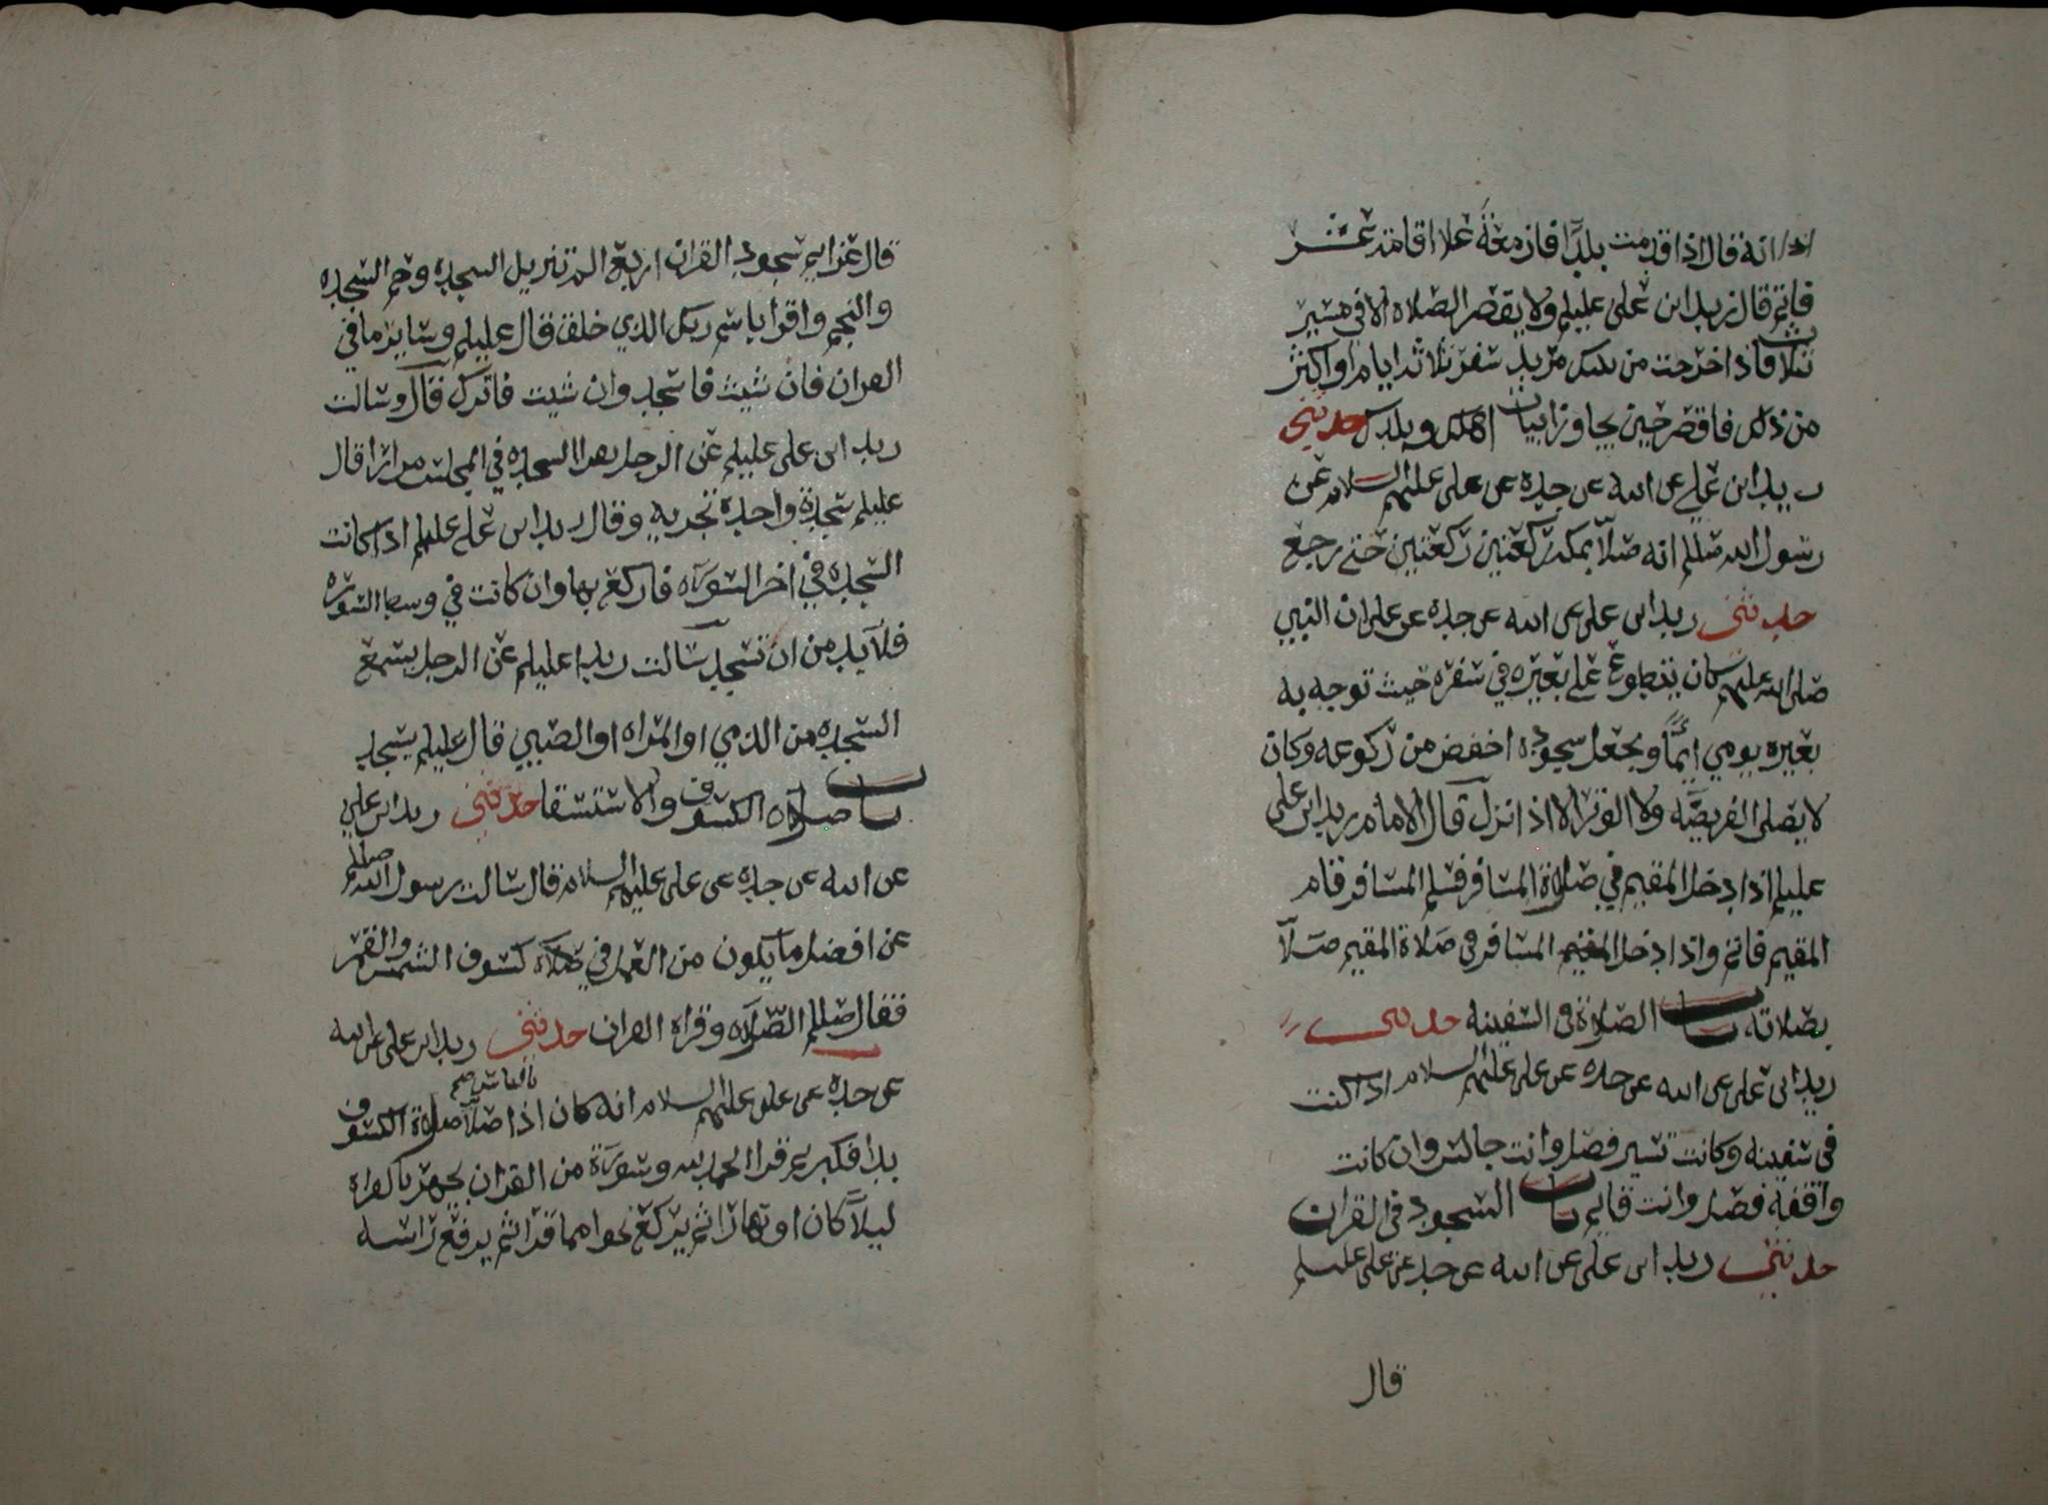 انه قال اذا قدمت بلدا فازمعة علا اقامة عشر
فاتم قال زيد ابن علي عليلم ولا يقصر الصلاه الا في مسير
ثلاث فاذا خرجت من بلدك تريد سفر ثلاثه ايام او اكثر
من ذلك فاقصر حين يجاوز ابيات اهلك وبلدك حدثني
زيد ابن علي عن ابيه عن جده عن علي عليهم السلام عن
رسول الله صللم انه صلا بمكة ركعتين ركعتين حتى رجع
حدثني زيد ابن علي عن ابيه عن جده عن علي ان النبي
صلى الله عليه كان يتطوع على بعيره في سفره حيث توجه به
بعيره يومي ايمآ ويجعل سجوده اخفض من ركوعه وكان
لا يصلي الفريضه ولا الوتر الا اذا نزل قال الامام زيد ابن علي
عليلم اذا دخل المقيم في صلاة المسافر فسلم المسافر قام
المقيم فاتم واذا دخل المسافر في صلاة المقيم صلا
بصلاته باب الصلاة في السفينه حدثني
زيد ابن علي عن ابيه عن جده عن علي عليهم السلام اذا كنت
في سفينه وكانت تسير فصل وانت جالس وان كانت
واقفه فصل وانت قايم باب السجود في القران
حدثني زيد ابن علي عن ابيه عن جده عن علي عليلم
قال
قال عزايم سجود القران اربع الم تنزيل السجده وحم السجده
والنجم واقرا باسم ربك الذي خلق قال عليلم وساير ما في
القران فان شيت فاسجد وان شيت فاترك قال وسالت
زيد ابن علي عليلم عن الرجل يقرا السجده في المجلس مرارا قال
عليلم سجدة واحدة تجزيه وقال زيد ابن علي عليلم اذا كانت
السجده في اخر السوره فاركع بها وان كانت في وسط السوره
فلا بد من ان تسجد سالت زيدا عليلم عن الرجل يسمع
السجده من الذمي او المراه او الصبي قال عليلم يسجد
باب صلاه الكسوف والاستسقا حدثني زيد ابن علي
عن ابيه عن جده عن علي عليهم السلام قال سالت رسول الله صللم
عن افضل ما يكون من العمل في صلاه كسوف الشمس والقمر
فقال صللم الصلاه وقراه القران حدثني زيد ابن علي عن ابيه
عن جده عن علي عليهم السلام انه كان اذا صلا بالناس صح صلاة الكسوف
بدا فكبر ثم قرا الحمد لله وسورة من القران يجهر بالقراه
ليلا كان او نهارا ثم يركع نحوا مما قرا ثم يرفع راسه